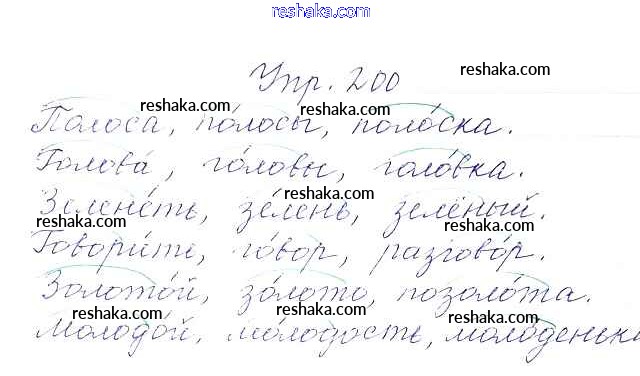 reshaka.com
Упр. 200 reshaka.com
reshaka.com reshaka.com reshaka.com
Полоса́, по́лосы, поло́ска.
Голова́, го́ловы, голо́вка.
reshaka.com reshaka.com reshaka.com
Зелене́ть, зе́лень, зелёный.
reshaka.com reshaka.com
Говори́ть, го́вор, разгово́р.
reshaka.com
Золото́й, зо́лото, позоло́та.
reshaka.com reshaka.com reshaka.com
Молодо́й, мо́лодость, моло́деньк